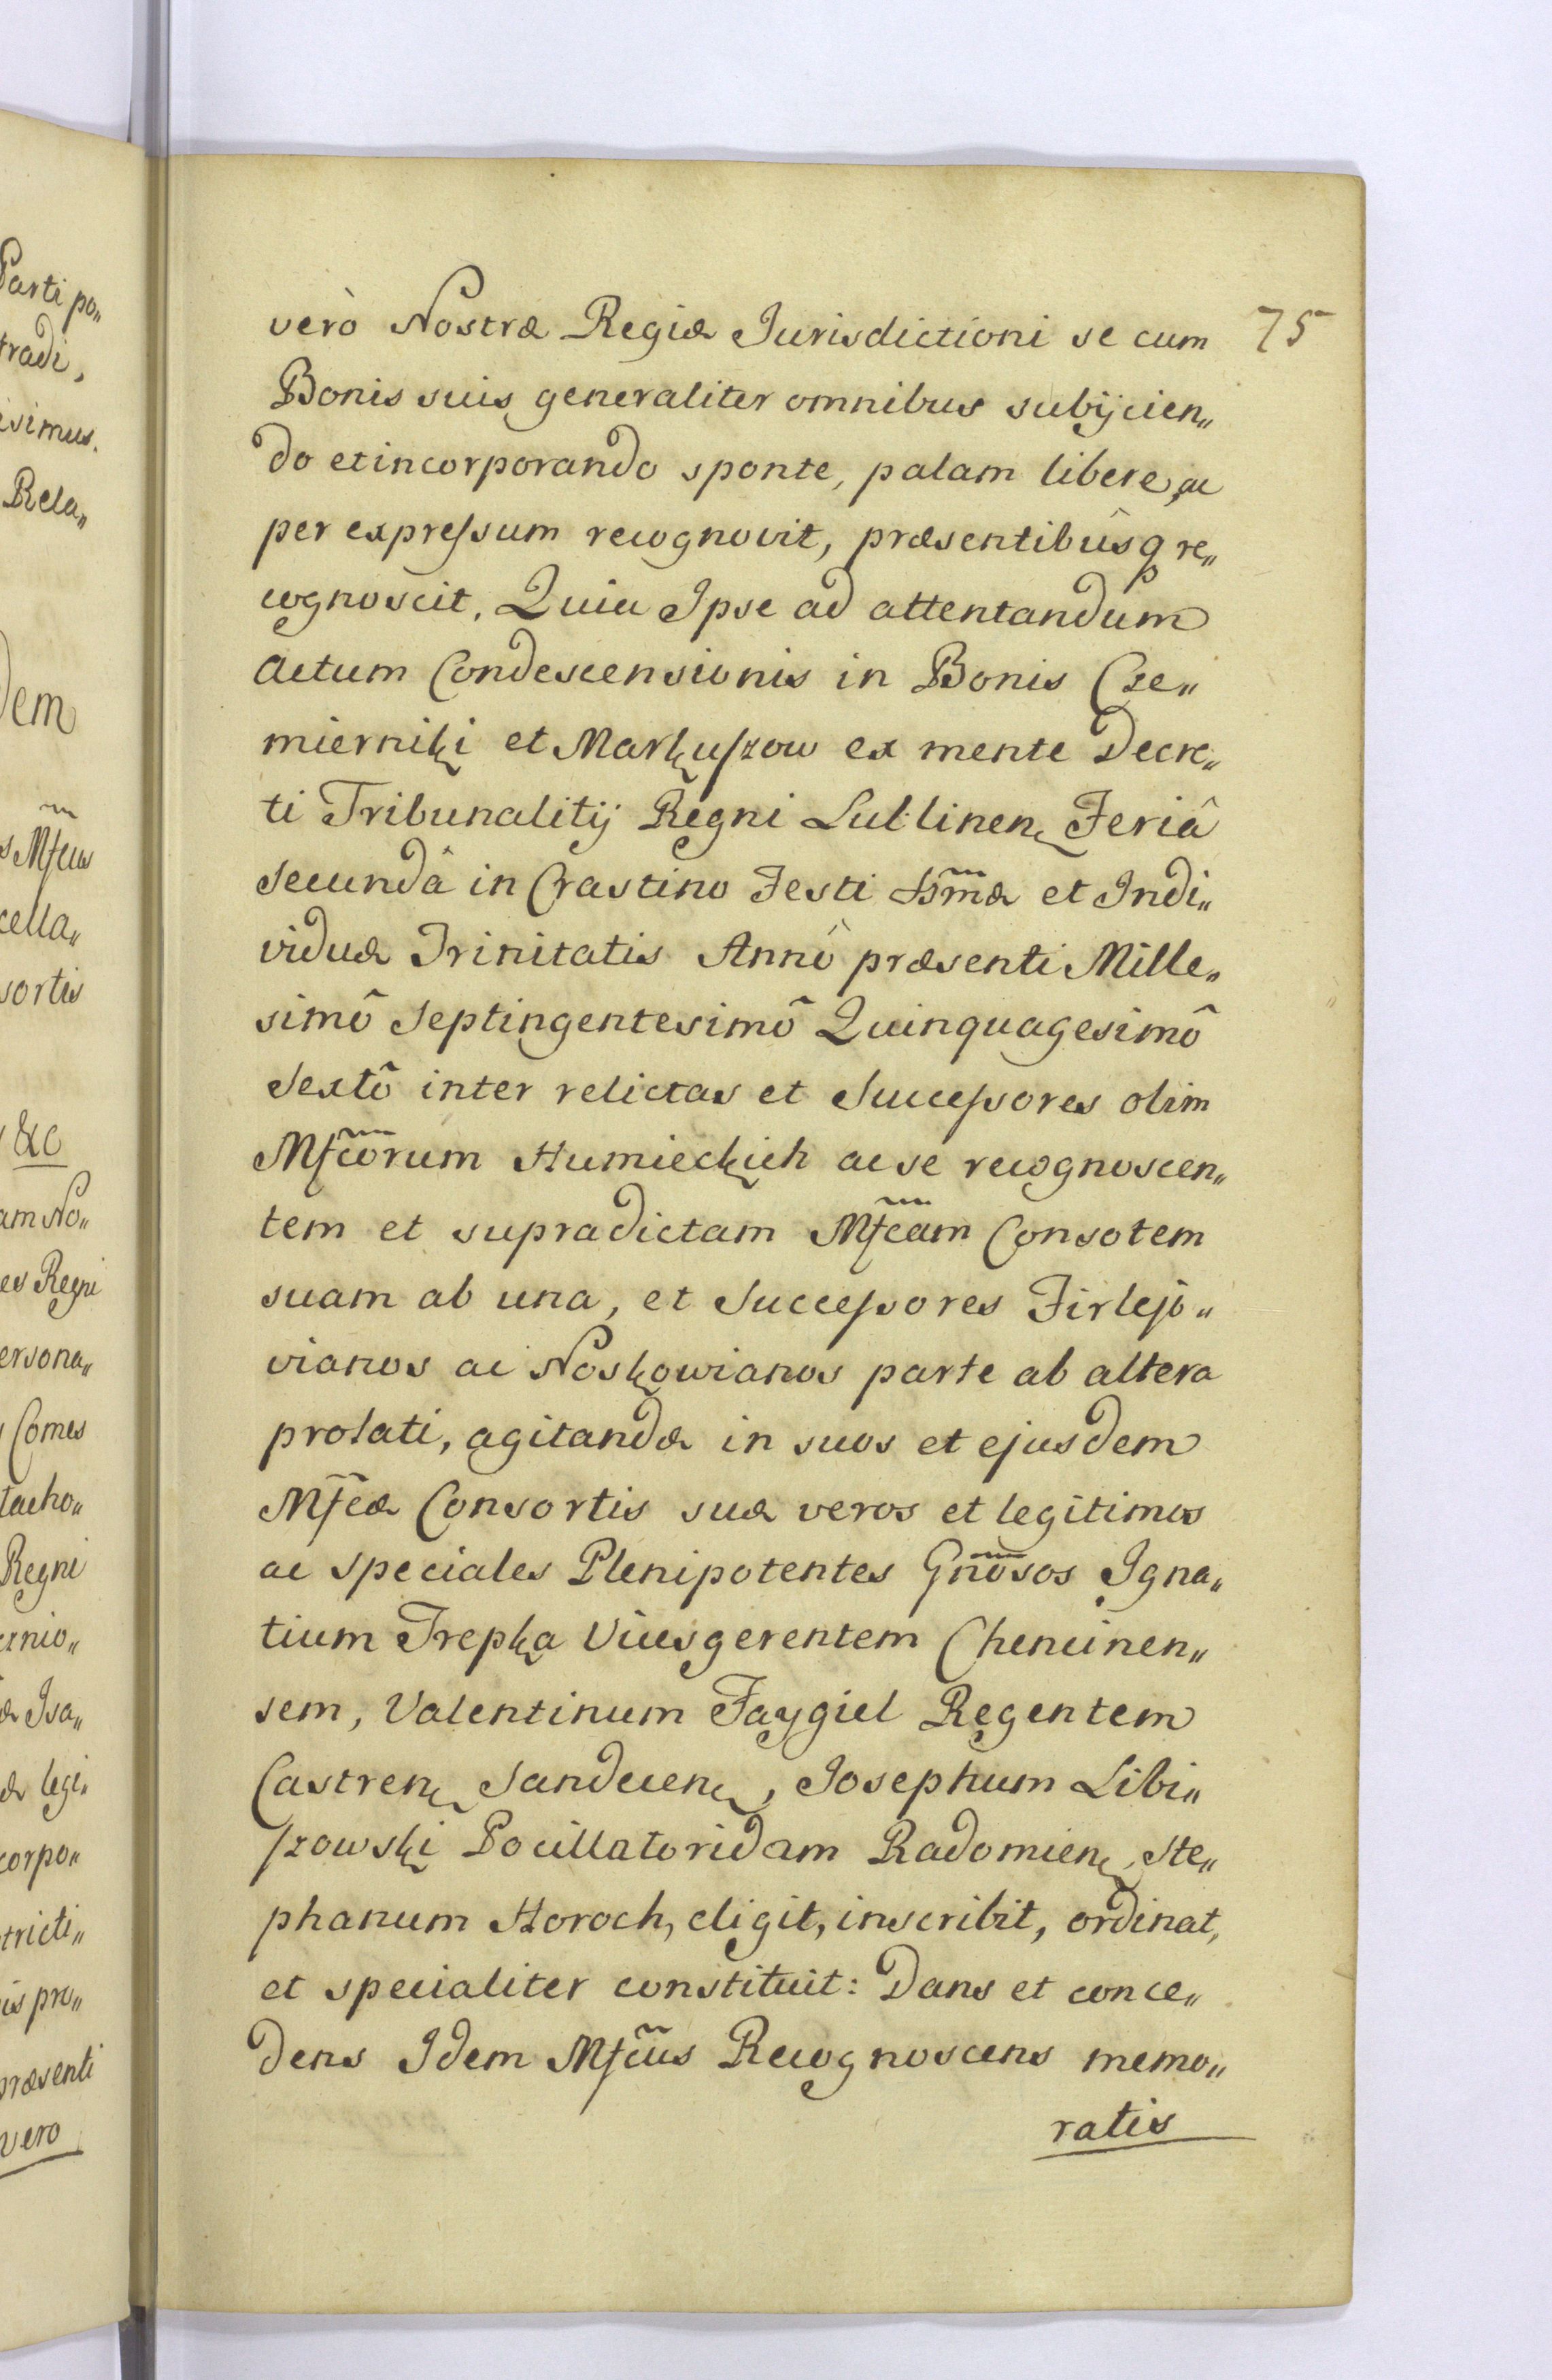 Parti po„
tradi,
isimus.
Rela„
dem
s Mſcus
cella„
sortis
&c
am No„
es Regni
ersona„
Comes
tacho„
Regni
æ Isa„
æ legi„
corpo„
tricti„
is pro„
præsenti
vero
75
verò Nostræ Regiæ Jurisdictioni se cum
Bonis suis generaliter omnibus subijcien„
do et incorporando sponte, palam libere, ac
per expreſsum recognovit, præsentibûsq̃ re„
cognoscit, Quia Ipse ad attentandum
actum Condescensionis in Bonis Cze„
mierniki et Markuſzow ex mente Decre„
ti Tribunalitij Regni Lublinen, Feriâ
Secundâ in Crastino Festi Ss̃mæ et Indi„
viduæ Trinitatis Annô præsenti Mille„
simô Septingentesimô Quinquagesimô
Sextô inter relictas et Succeſsores olim
Mſc̃orum Humieckich ac se recognoscen„
tem et supradictam Mſc̃am Consotem
suam ab una, et Succeſsores Firlejo„
vianos ac Noskowianos parte ab altera
prolati, agitandæ in suos et ejusdem
Mſc̃æ Consortis suæ veros et legitimos
ac speciales Plenipotentes Gñosos Igna„
tium Trepka Vicesgerentem Chencinen„
sem, Valentinum Faygiel Regentem
Castren, Sandecen, Josephum Libi„
ſzowski Pocillatoridam Radomien, Ste„
phanum Horoch, eligit, inscribit, ordinat,
et specialiter constituit: Dans et conce„
dens Idem Mſc̃us Recognoscens memo„
ratis